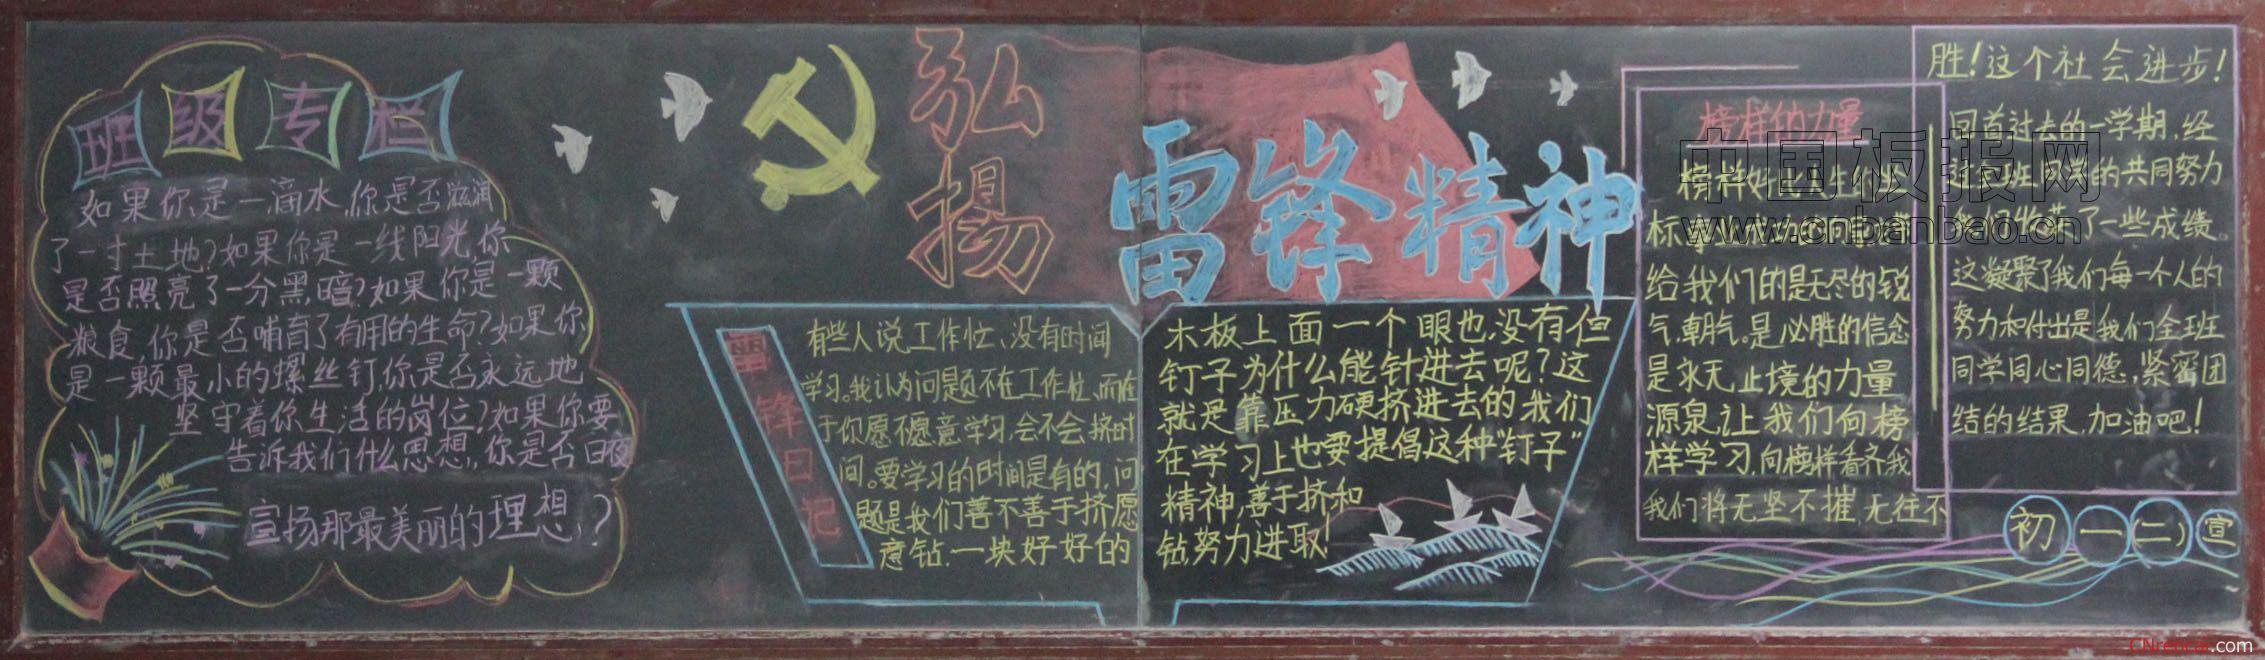 班级专栏
如果你是一滴水,你是否滋润
了一寸土地?如果你是一线阳光,你
是否照亮了一分黑暗?如果你是一颗
粮食,你是否哺育了有用的生命?如果你
是一颗最小的螺丝钉,你是否永远地
坚守着你生活的岗位?如果你要
告诉我们什么思想,你是否日夜
宣扬那最美丽的理想,?
弘扬
雷锋精神
雷锋日记
有些人说工作忙、没有时间
学习。我认为问题不在工作忙,而在
于你愿不愿意学习,会不会挤时
间。要学习的时间是有的,问
题是我们善不善于挤,愿
意钻.一块好好的
木板上面一个眼也没有但
钉子为什么能针进去呢?这
就是靠压力硬挤进去的我们
在学习上也要提倡这种"钉子"
精神,善于挤和
钻,努力进取!
榜样的力量
榜样好比
标
给我们的是无尽的锐
气,朝气。是必胜的信念
是永无止境的力量
源泉,让我们向榜
样学习,向榜样看齐,我
我们将无坚不摧,无往不
胜!这个社会进步!
回首过去的一学期,经
班 的共同努力
了一些成绩。
这凝聚了我们每一个人的
努力和付出是我们全班
同学同心同德,紧密团
结的结果,加油吧!
初一(二)宣
中国板报网
www.cnbanbao.cn
.com